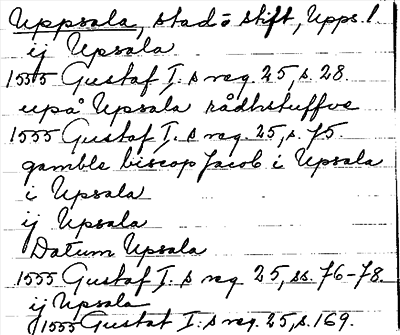 Uppsala, stad o stift, Upps. l
ij Upsala
1555 Gustaf I. s reg. 25, s. 28.
upå Upsala rådhstuffve
1555 Gustaf I. s reg. 25, s. 75.
gamble biscop Jacob i Upsala
i Upsala
ij Upsala
Datum Upsala
1555 Gustaf I. s reg 25, ss. 76-78.
ij Upsala
1555 Gustaf I. s reg. 25, s. 169.